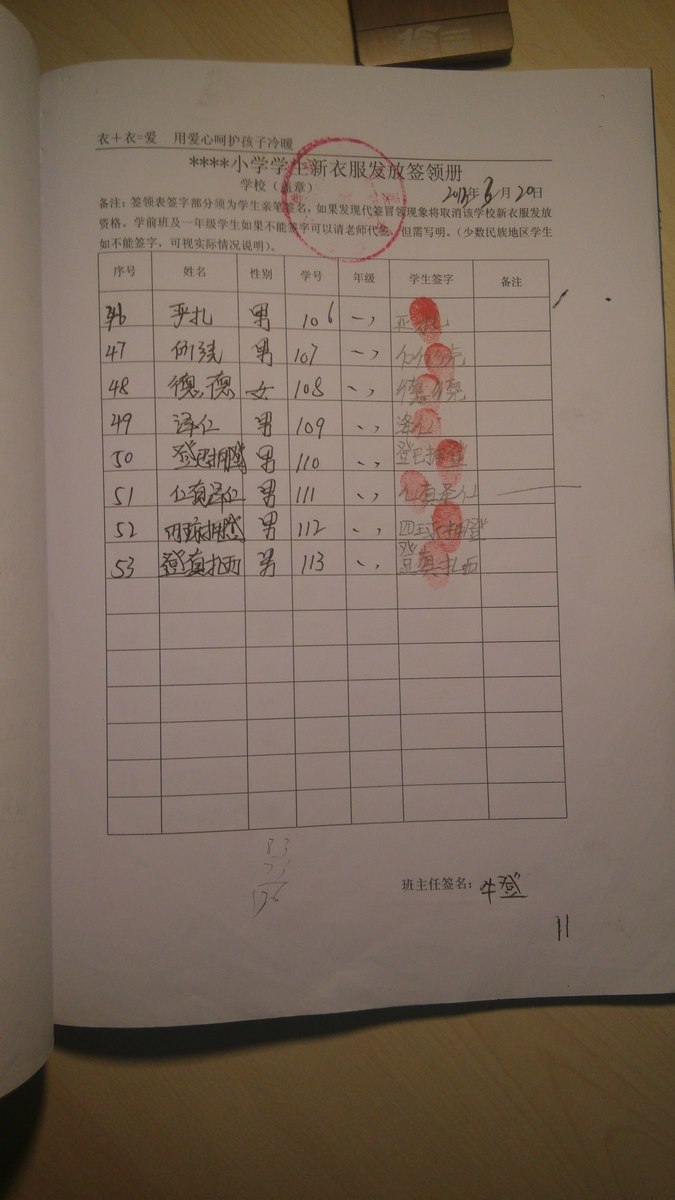 衣+衣=爱 用爱心呵护孩子冷暖
****小学学生新衣服发放签领册
学校(盖章) 2013年6月20日
备注:签领表签字部分须为学生亲笔签名,如果发现代签冒领现象将取消该学校新衣服发放
资格。学前班及一年级学生如果不能签字可以请老师代签,但需写明。(少数民族地区学生
如不能签字,可视实际情况说明)。
序号 姓名 性别 学号 年级 学生签字 备注
46 男 106 一、
47 男 107 、、
48 德德 女 108 、、
49 泽仁 男 109 、、 泽仁
50 登巴拥登 男 110 、、 登巴拥登
51 仁真泽仁 男 111 、、 仁真泽仁
52 四球拥登 男 112 、、 四球拥登
53 登真扎西 男 113 、、 登真扎西
83
班主任签名:牛登
11